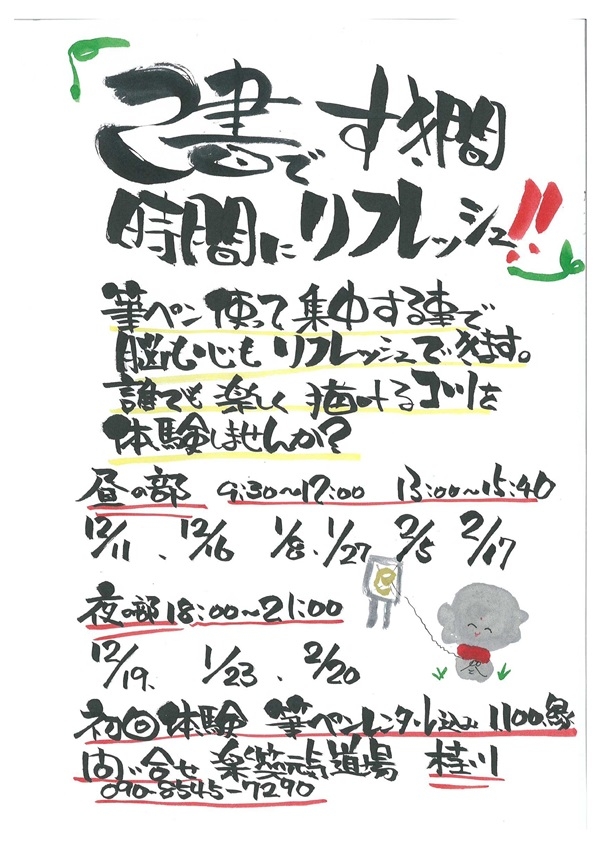 己書で すき間
時間に リフレッシュ!!
筆ペン使って集中する事で
脳も心もリフレッシュできます。
誰でも楽しく描けるコツを
体験しませんか?
昼の部 9:30〜12:00 13:00〜15:40
12/11、12/16 1/8、1/27 2/5 2/17
夜の部 18:00〜21:00
12/19、1/23、2/20
初回体験 筆ペンレンタル込み 1100縁
問い合せ 楽笑元気道場 桂川
090-8545-7290